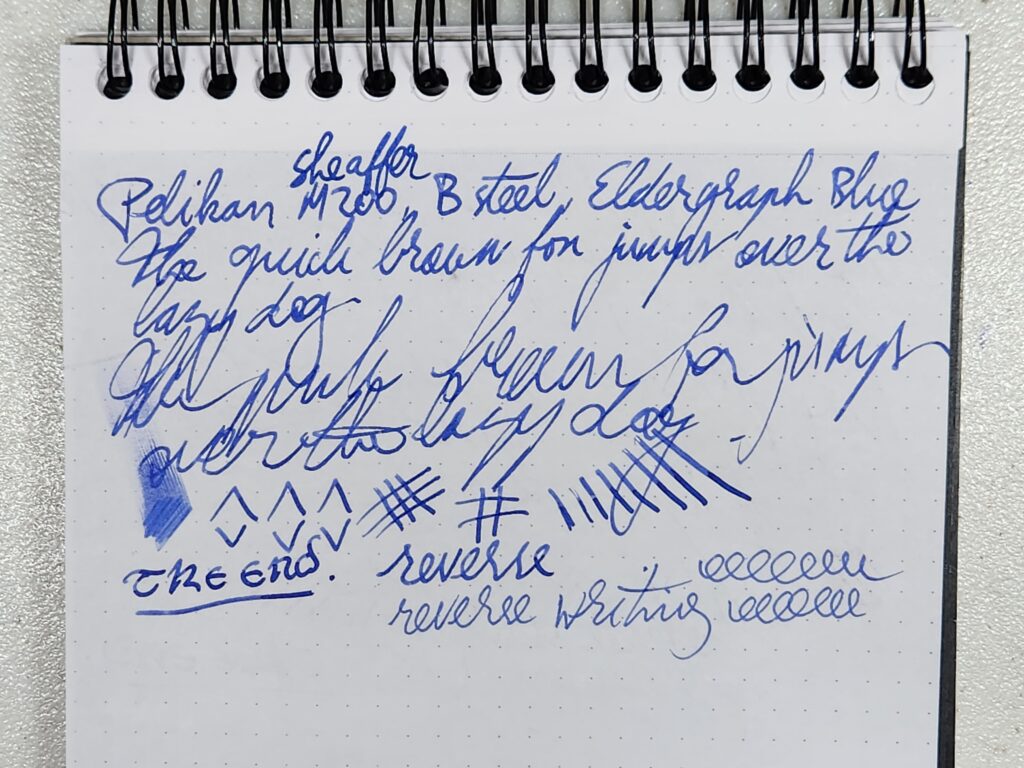 sheaffer
Pelikan M200, B steel, Eldergraph Blue
The quick brown fox jumps over the
lazy dog
The quick brown fox jumps
over the lazy dog
THE END.
reverse
reverse writing